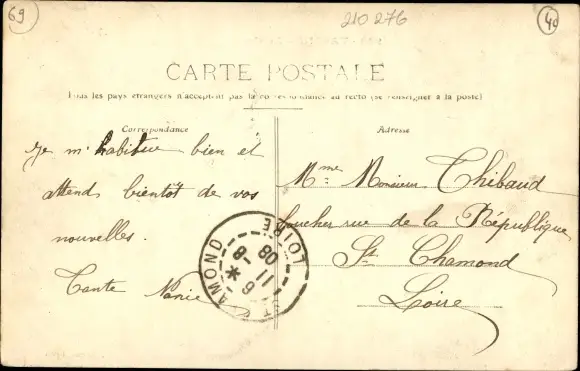 69
210 276
40
CARTE POSTALE
Tous les pays étrangers n'acceptent pas la correspondance au recto (se renseigner à la poste)
Correspondance
Je m'habitue bien et
attend bientôt de vos
nouvelles.
Tante
Adresse
Mme Monsieur Thibaud
boucher rue de la République
St Chamond
Loire
AMOND LOIRE
6 * -8
11 08